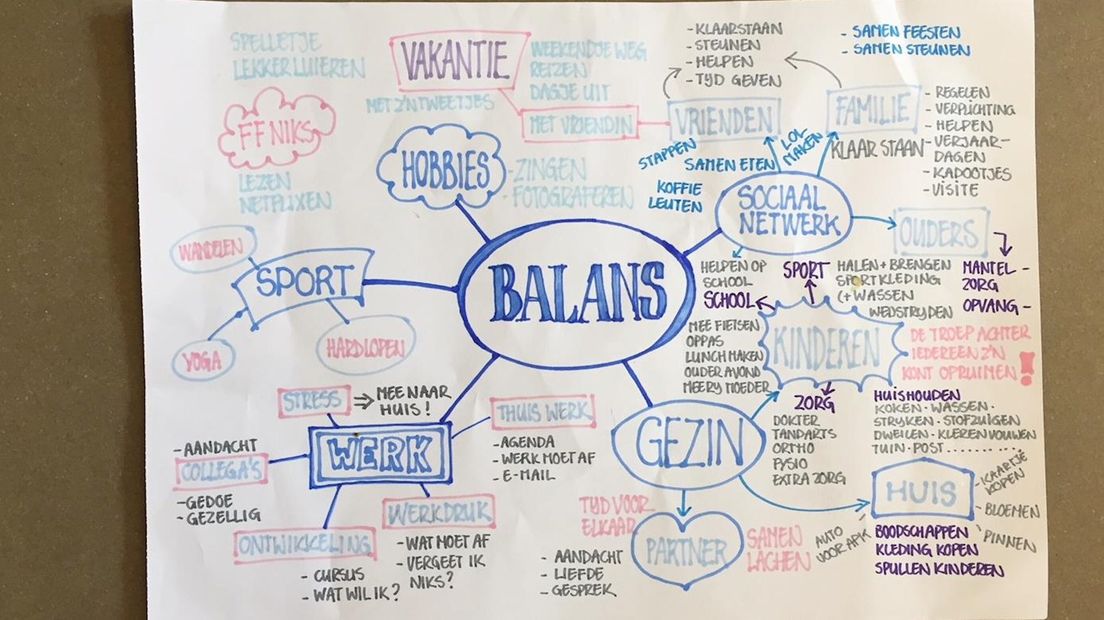 SPELLETJE
LEKKER LUIEREN
FF NIKS
LEZEN
NETFLIXEN
VAKANTIE
WEEKENDJE WEG
REIZEN
DAGJE UIT
MET Z'N TWEETJES
MET VRIENDIN
HOBBIES
-ZINGEN
-FOTOGRAFEREN
- KLAARSTAAN
- STEUNEN
- HELPEN
- TYD GEVEN
- SAMEN FEESTEN
- SAMEN STEUNEN
VRIENDEN
FAMILIE
- REGELEN
- VERPLICHTING
- HELPEN
- VERJAAR-
DAGEN
- KADOOTJES
- VISITE
KLAAR STAAN
STAPPEN
SAMEN ETEN
LOL
MAKEN
KOFFIE
LEUTEN
SOCIAAL
NETWERK
OUDERS
MANTEL-
ZORG
OPVANG-
WANDELEN
SPORT
YOGA
HARDLOPEN
BALANS
HELPEN OP
SCHOOL
SCHOOL
SPORT
HALEN + BRENGEN
SPORTKLEDING
(+ WASSEN
WEDSTRYDEN
MEE FIETSEN
OPPAS
LUNCH MAKEN
OUDER AVOND
MEERY MOEDER
KINDEREN
DE TROEP ACHTER
IEDEREEN Z'N
KONT OPRUIMEN!
ZORG
DOKTER
TANDARTS
ORTHO
FYSIO
EXTRA ZORG
HUISHOUDEN
KOKEN · WASSEN ·
STRYKEN · STOFZUIGEN
DWEILEN · KLEREN VOUWEN
TUIN · POST ..........
STRESS
⇒ MEE NAAR
HUIS!
WERK
THUIS WERK
- AGENDA
- WERK MOET AF
- E-MAIL
- AANDACHT
COLLEGA'S
- GEDOE
- GEZELLIG
ONTWIKKELING
- CURSUS
- WAT WIL IK?
WERKDRUK
- WAT MOET AF
- VERGEET IK
NIKS?
GEZIN
TYD VOOR
ELKAAR
PARTNER
- AANDACHT
- LIEFDE
- GESPREK
SAMEN
LACHEN
HUIS
- KAARTJE
KOPEN
- BLOEMEN
PINNEN
AUTO
VOOR APK
BOODSCHAPPEN
KLEDING KOPEN
SPULLEN KINDEREN